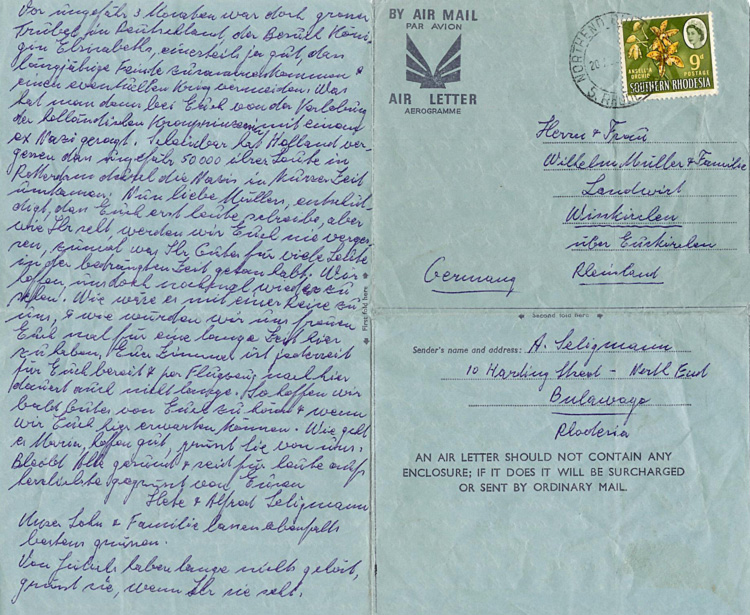 Vor ungefähr 3 Monaten war doch grosser
Trubel in Deutschland, der Besuch Köni-
gin Elizabeths, einerseits ja gut, dass
langjährige Feinde zusammenkommen &
einen eventuellen Krieg vermeiden. Was
hat man denn bei Euch von der Verlobung
der holländischen Kronprinzessin mit einem
ex Nazi gesagt. Scheinbar hat Holland ver-
gessen dass ungefähr 50000 ihrer Leute in
Rotterdam durch die Nazis in kurzer Zeit
umkamen. Nun liebe Müllers, entschul-
digt, dass Euch erst heute schreibe, aber
wie Ihr seht, werden wir Euch nie verges-
sen, zumal was Ihr Gutes für viele Leute
in der bedrängten Zeit getan habt. Wir
hoffen, uns doch nochmal wieder zu
sehen. Wie wäre es mit einer Reise zu
uns, & wie würden wir uns freuen
Euch mal für eine lange Zeit hier
zu haben, Euer Zimmer ist jederzeit
für Euch bereit & per Flugzeug nach hier
dauert auch nicht lange. So hoffen wir
bald Gutes von Euch zu hören & wenn
wir Euch hier erwarten können. Wie geht
es Maria, hoffen gut, grüsst sie von uns.
Bleibt Alle gesund & seid für heute aufs
herzlichste gegrüsst von Euren
Hete & Alfred Seligmann
Unser Sohn & Familie lassen ebenfalls
bestens grüssen.
Von haben lange nichts gehört,
grüsst sie, wenn Ihr sie seht.
First fold here
BY AIR MAIL
PAR AVION
AIR LETTER
AEROGRAMME
NORTHEND
20
S. RHOD
9d
ANSELL'S
ORCHID
POSTAGE
SOUTHERN RHODESIA
Herrn & Frau
Wilhelm Müller & Familie
Landwirt
Winkirchen
über Euskirchen
Germany
Rheinland
Second fold here
Sender's name and address: A. Seligmann
10 Harting Street - North End
Bulawayo
Rhodesia
AN AIR LETTER SHOULD NOT CONTAIN ANY
ENCLOSURE; IF IT DOES IT WILL BE SURCHARGED
OR SENT BY ORDINARY MAIL.